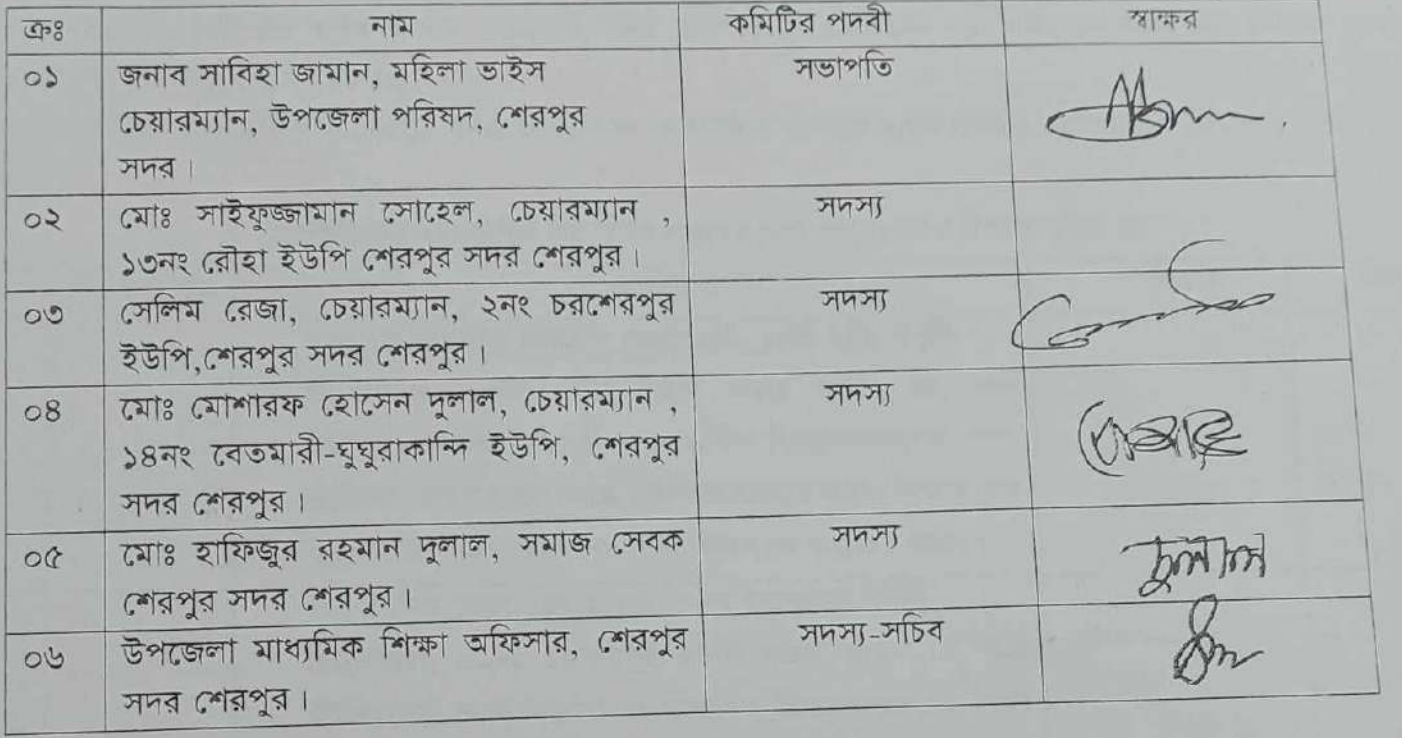 ক্রঃ নাম কমিটির পদবী স্বাক্ষর
০১ জনাব সাবিহা জামান, মহিলা ভাইস সভাপতি
চেয়ারম্যান, উপজেলা পরিষদ, শেরপুর
সদর।
০২ মোঃ সাইফুজ্জামান সোহেল, চেয়ারম্যান , সদস্য
১৩নং রৌহা ইউপি শেরপুর সদর শেরপুর।
০৩ সেলিম রেজা, চেয়ারম্যান, ২নং চরশেরপুর সদস্য
ইউপি,শেরপুর সদর শেরপুর।
০৪ মোঃ মোশারফ হোসেন দুলাল, চেয়ারম্যান , সদস্য
১৪নং বেতমারী-ঘুঘুরাকান্দি ইউপি, শেরপুর
সদর শেরপুর।
০৫ মোঃ হাফিজুর রহমান দুলাল, সমাজ সেবক সদস্য
শেরপুর সদর শেরপুর।
দুলাল
০৬ উপজেলা মাধ্যমিক শিক্ষা অফিসার, শেরপুর সদস্য-সচিব
সদর শেরপুর।